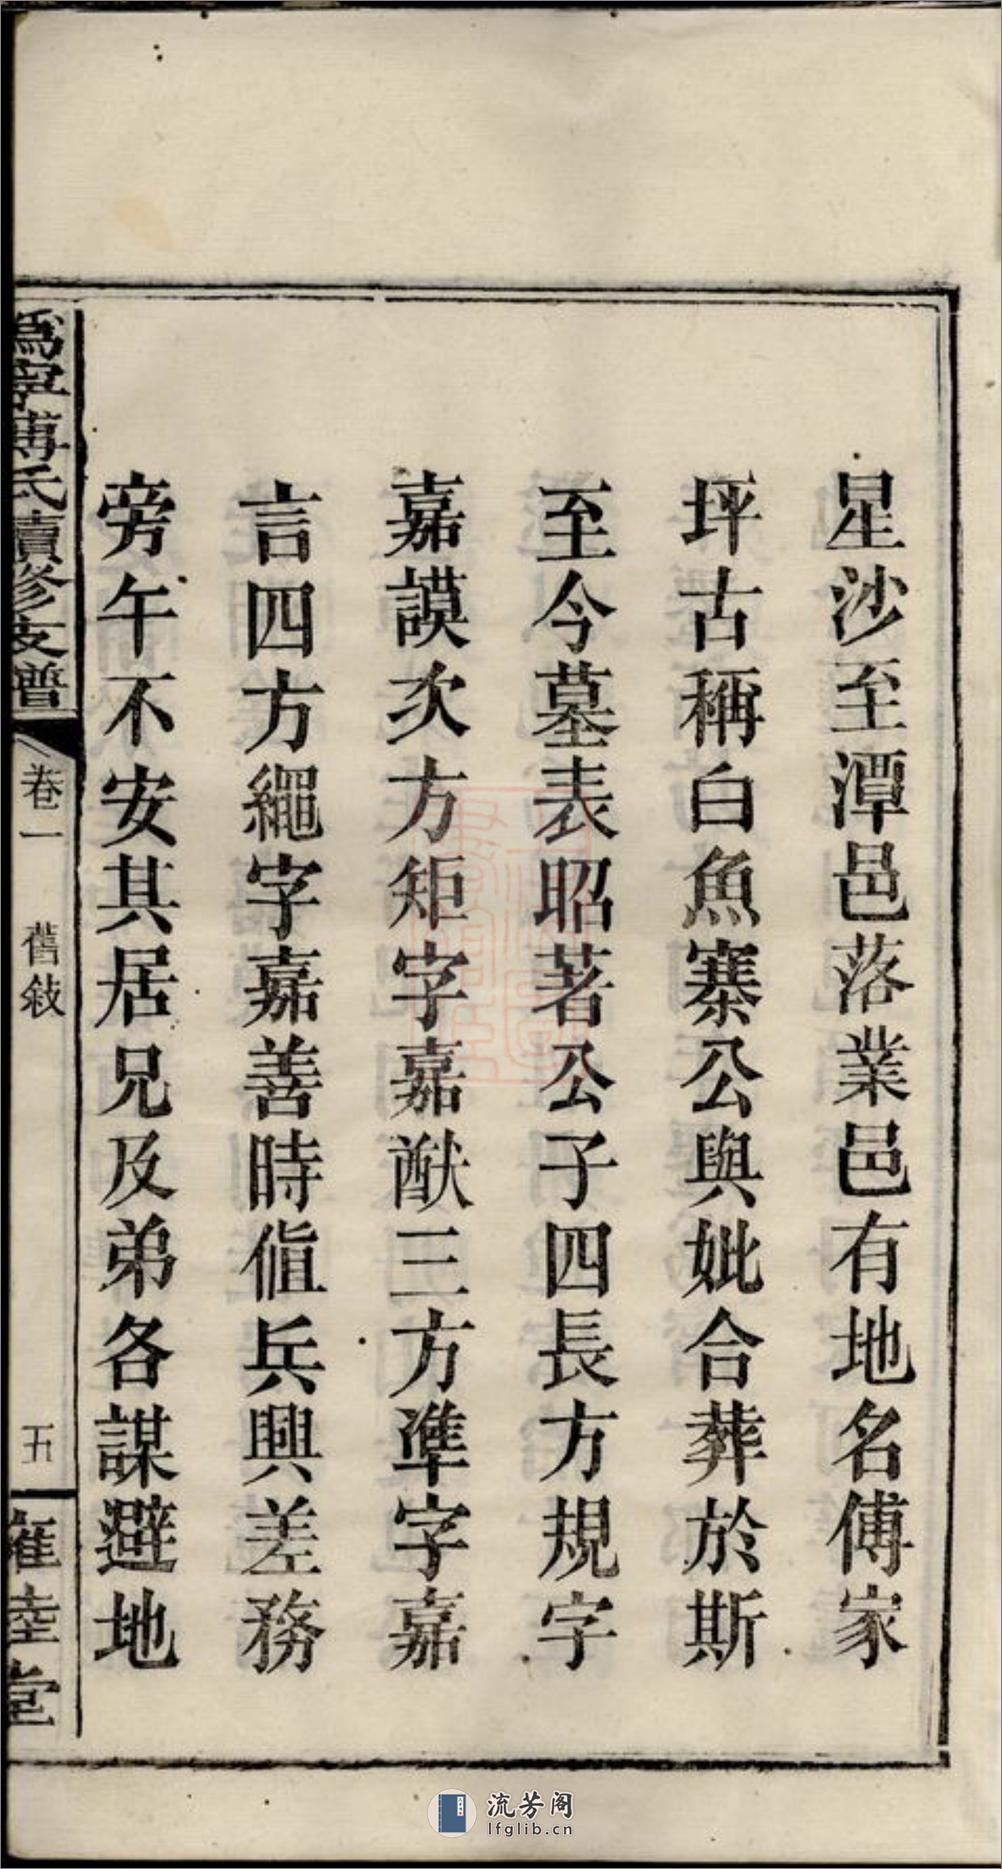 星沙至潭邑落業邑有地名傅家
坪古稱白魚寨公與妣合葬於斯
至今墓表昭著公子四長方規字
嘉謨次方矩字嘉猷三方準字嘉
言四方繩字嘉善時值兵興差務
旁午不安其居兄及弟各謀避地
爲寧傅氏續修支譜
卷一 舊敍
五
堂
流芳阁
lfglib.cn